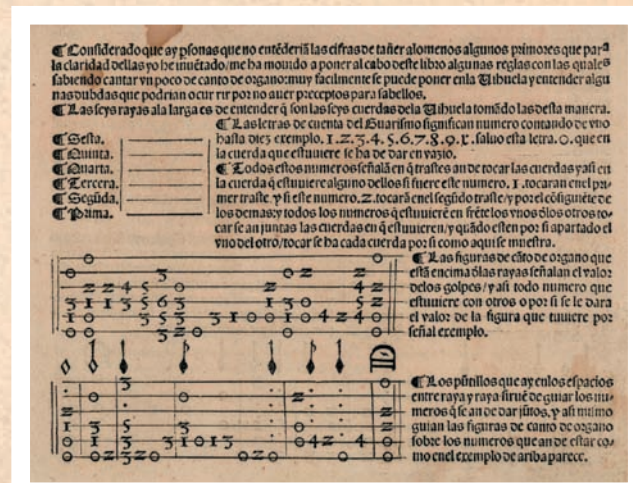 ¶ Considerado que ay pſonas que no entēderiā las cifras de tañer alomenos algunos primores que parª
la claridad dellas yo he inuētado/me ha mouido a poner al cabo deſte libro algunas reglas con las quales
ſabiendo cantar vn poco de canto de organo: muy facilmente ſe puede poner enla Uihuela y entender algu
nas dubdas que podrian ocurrir por no auer preceptos para ſabellos.
¶ Las ſeys rayas ala larga es de entender q̄ son las ſeys cuerdas dela Uihuela tomādo las deſta manera.
¶ Las letras de cuenta del Guariſmo ſignifican numero contando de vno
¶ Seſta.
¶ Quinta.
¶ Quarta.
¶ Tercera.
¶ Segūda.
¶ Prima.
haſta diez exemplo. 1.2.3.4.5.6.7.8.9.x. ſaluo eſta letra. o. que en
la cuerda que eſtuuiere ſe ha de dar en vazio.
¶ Todos eſtos numeros ſeñalā en q̄ traſtes an de tocar las cuerdas y aſi en
la cuerda q̄ eſtuuiere alguno dellos ſi fuere eſte numero. 1. tocaran enel pri-
mer traſte. y ſi eſte numero. 2. tocarā enel ſegūdo traſte/y por el cōſiguiēte de
los demas: y todos los numeros q̄ eſtuuierē en frēte los vnos ōlos otros to-
car ſe an juntas las cuerdas en q̄ eſtuuieren/y quādo eſten por ſi apartado el
vno del otro/tocar ſe ha cada cuerda por ſi como aqui ſe mueſtra.
¶ Las figuras de cāto de organo que
eſtā encima ōlas rayas ſeñalan el valor
delos golpes/y aſi todo numero que
eſtuuiere con otros o por ſi ſe le dara
el valor de la figura que tuuiere por
ſeñal exemplo.
¶ Los pūtillos que ay enlos eſpacios
entre raya y raya ſiruē de guiar los nu-
meros q̄ ſe an de dar jūtos, y aſi miſmo
guian las figuras de canto de organo
ſobre los numeros que an de eſtar co-
mo enel exemplo de arriba parece.